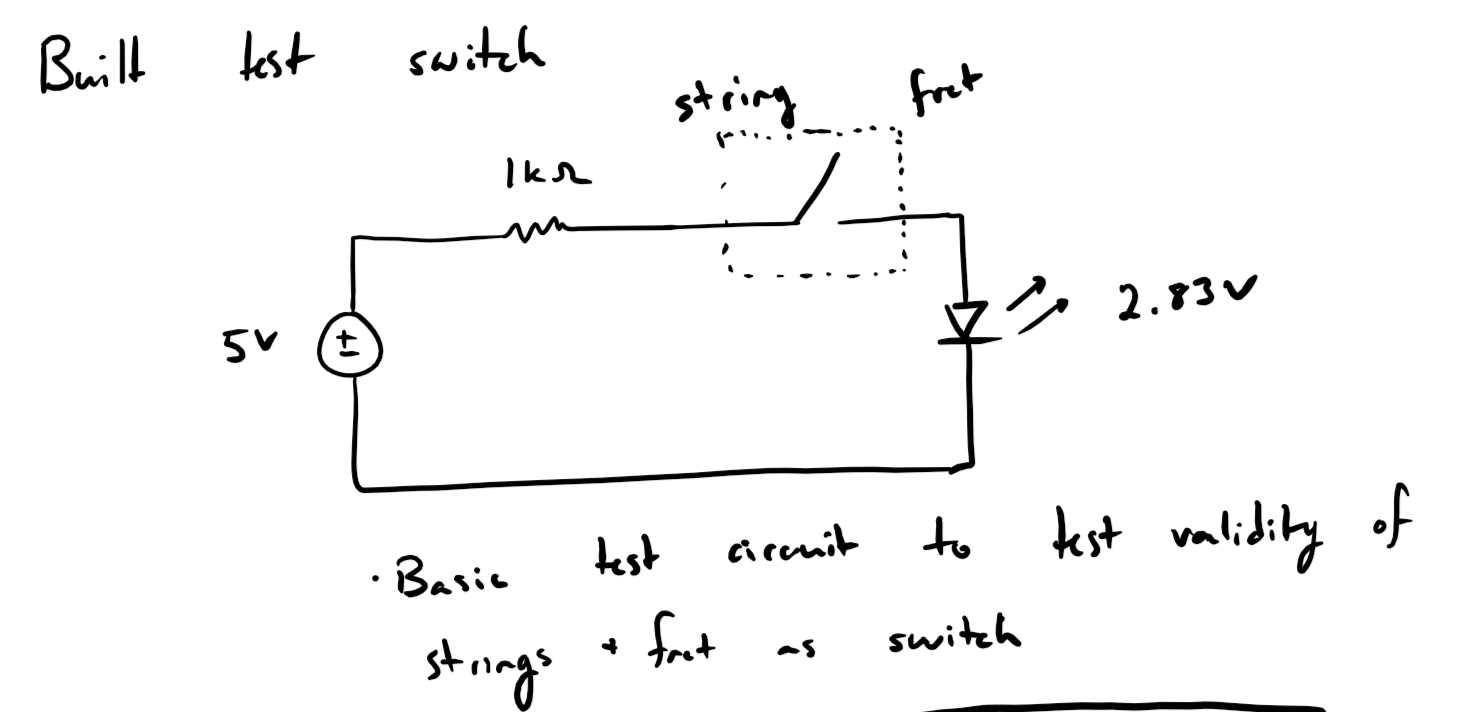 Built test switch
string fret
1kΩ
5V
±
2.83V
· Basic test circuit to test validity of
strings + fret as switch